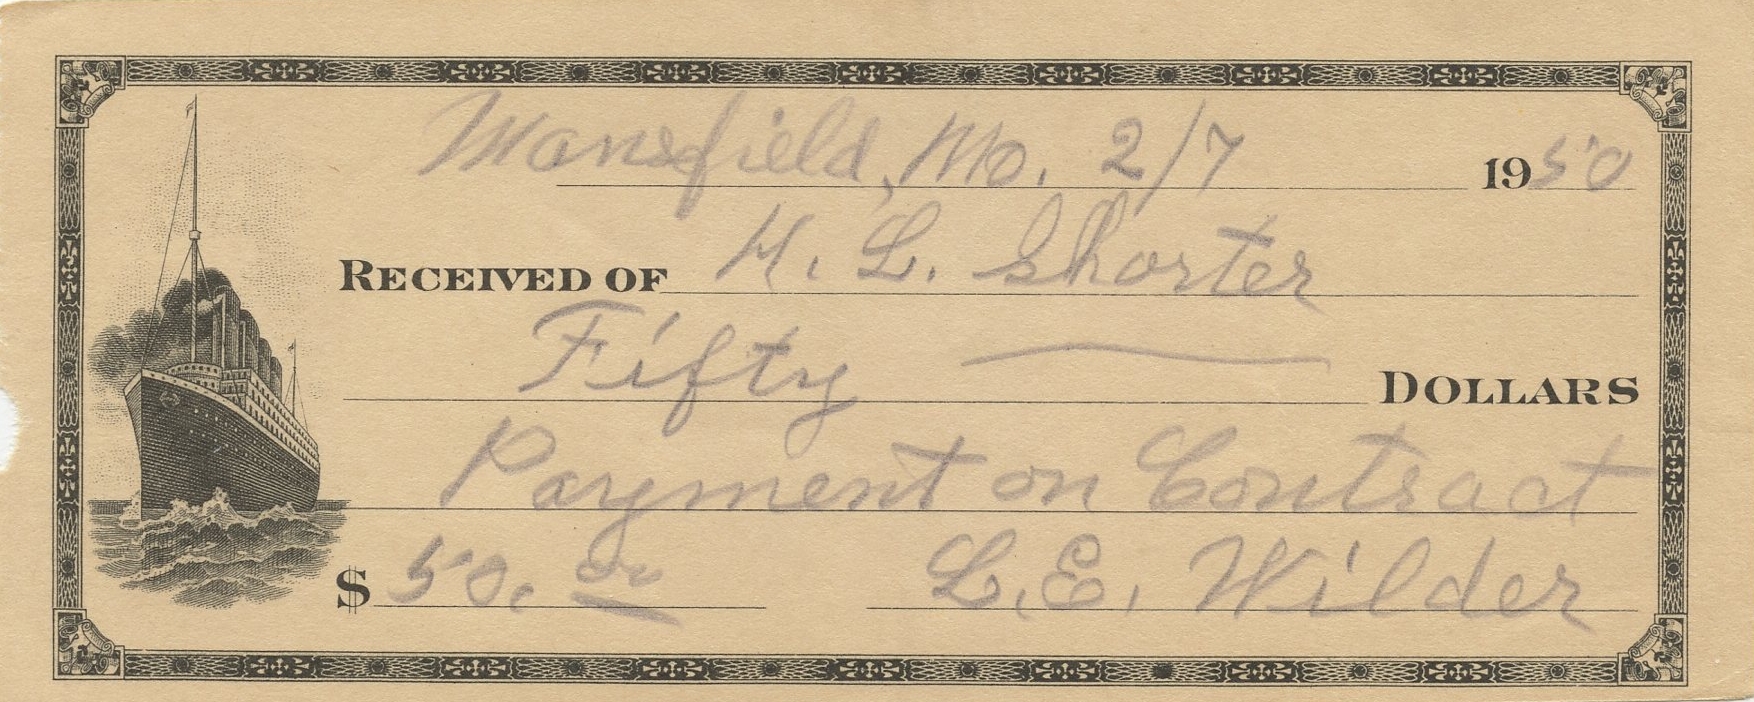 Mansfield, Mo. 2/7 1950
RECEIVED OF H. L. Shorter
Fifty DOLLARS
Payment on Contract
$ 50.00 L.E. Wilder